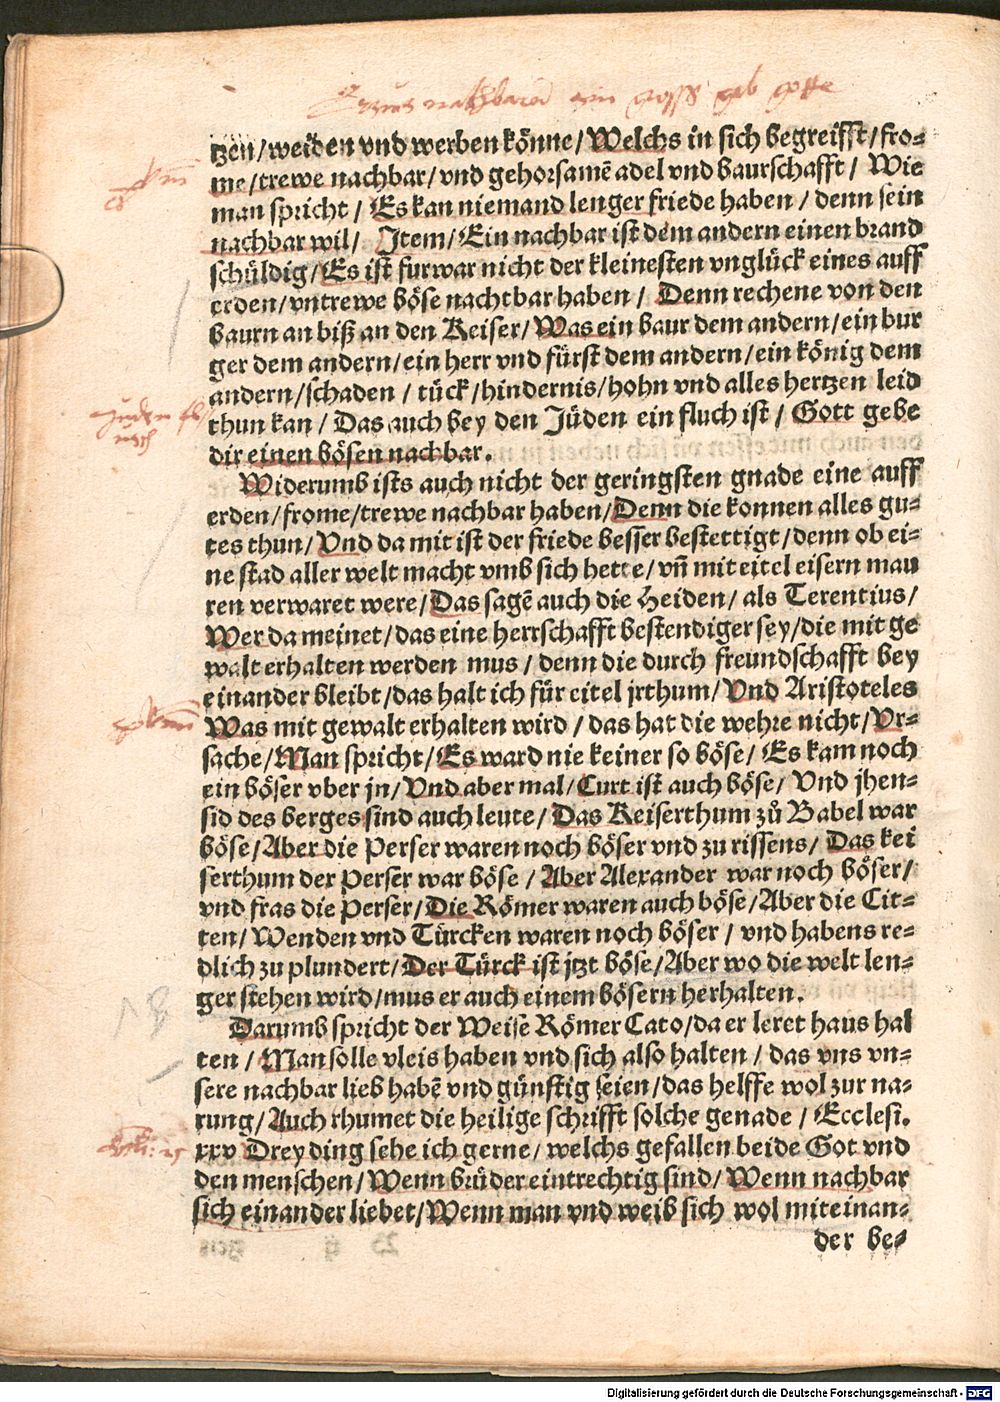 nachbarn ein gross gab gotte
tzen/weiden vnd werben könne/Welchs in sich begreifft/fro-
me/trewe nachbar/vnd gehorsamē adel vnd baurschafft/ Wie
man spricht / Es kan niemand lenger friede haben / denn sein
nachbar wil/ Item/Ein nachbar ist dem andern einen brand
schüldig/Es ist furwar nicht der kleinesten vnglück eines auff
erden/vntrewe böse nachtbar haben / Denn rechene von den
baurn an biß an den Keiser/Was ein baur dem andern/ein bur
ger dem andern/ein herr vnd fürst dem andern/ein könig dem
andern/schaden / tück/hindernis/hohn vnd alles hertzen leid
thun kan / Das auch bey den Jüden ein fluch ist / Gott gebe
dir einen bösen nachbar.
Widerumb ists auch nicht der geringsten gnade eine auff
erden/frome/trewe nachbar haben/Denn die konnen alles gu-
tes thun/Vnd da mit ist der friede besser bestettigt/denn ob ei-
ne stad aller welt macht vmb sich hette/vn̄ mit eitel eisern mau
ren verwaret were/Das sagē auch die Heiden/ als Terentius/
Wer da meinet/das eine herrschafft bestendiger sey/die mit ge
walt erhalten werden mus / denn die durch freundschafft bey
einander bleibt/das halt ich für eitel jrthum/Vnd Aristoteles
Was mit gewalt erhalten wird / das hat die wehre nicht/Vr-
sache/Man spricht/Es ward nie keiner so böse/ Es kam noch
ein böser vber jn/Vnd aber mal/Curt ist auch böse/ Vnd jhen-
sid des berges sind auch leute/ Das Keiserthum zů Babel war
böse/Aber die Perser waren noch böser vnd zu rissens/ Das kei
serthum der Perser war böse / Aber Alexander war noch böser/
vnd fras die Perser/Die Römer waren auch böse/Aber die Cit-
ten/Wenden vnd Türcken waren noch böser / vnd habens re-
dlich zu plundert/Der Türck ist jtzt böse/Aber wo die welt len-
ger stehen wird/mus er auch einem bösern herhalten.
Darumb spricht der Weise Römer Cato/da er leret haus hal
ten / Man solle vleis haben vnd sich also halten / das vns vn-
sere nachbar lieb habē vnd günstig seien/das helffe wol zur na-
rung/Auch rhumet die heilige schrifft solche genade / Ecclesi.
xxv Drey ding sehe ich gerne/welchs gefallen beide Got vnd
den menschen/Wenn brüder eintrechtig sind/Wenn nachbar
sich einander liebet/Wenn man vnd weib sich wol miteinan-
der be-
Digitalisierung gefördert durch die Deutsche Forschungsgemeinschaft - DFG